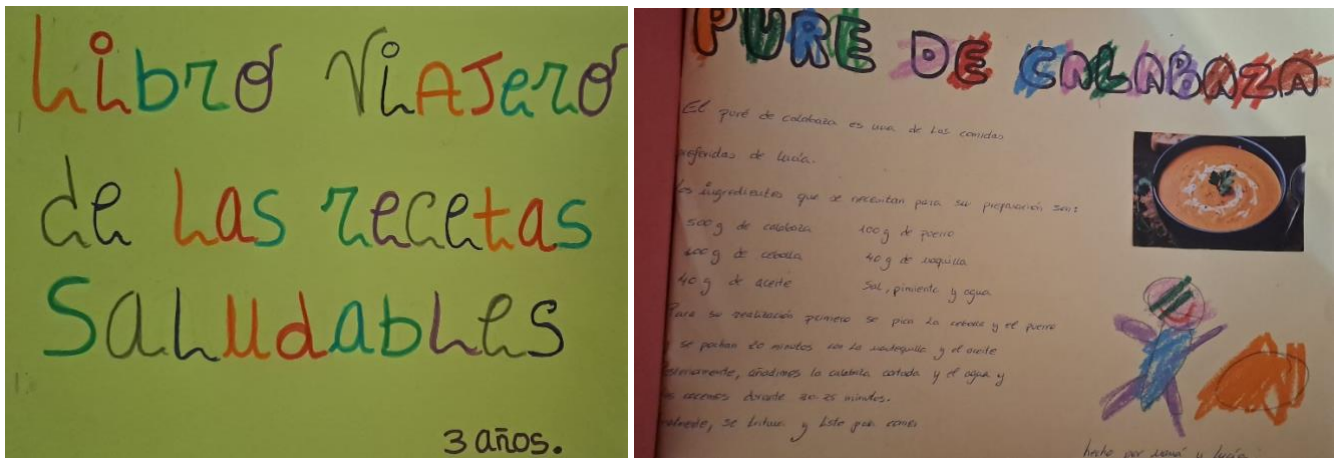 Libro Viajero
de las recetas
Saludables
3 años.
PURE DE CALABAZA
El puré de calabaza es una de las comidas
preferidas de Lucía.
Los ingredientes que se necesitan para su preparación son:
500g de calabaza 100g de puerro
de cebolla 40g de
40g de aceite Sal, pimienta y agua
Para su realización primero se pica la cebolla y el puerro
se pochan 20 minutos con la mantequilla y el aceite
añadimos la calabaza cortada y el agua y
cocemos durante 20-25 minutos.
se tritura y listo para comer
hecho por mamá y Lucía